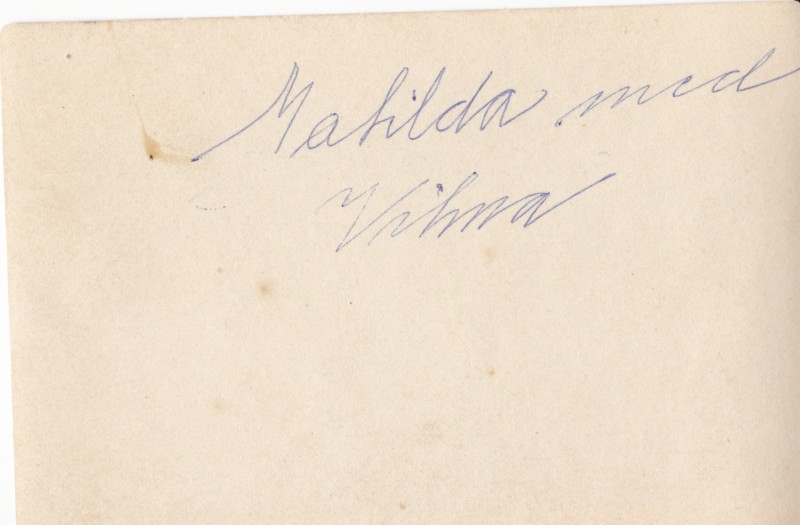 Matilda med
Vilma